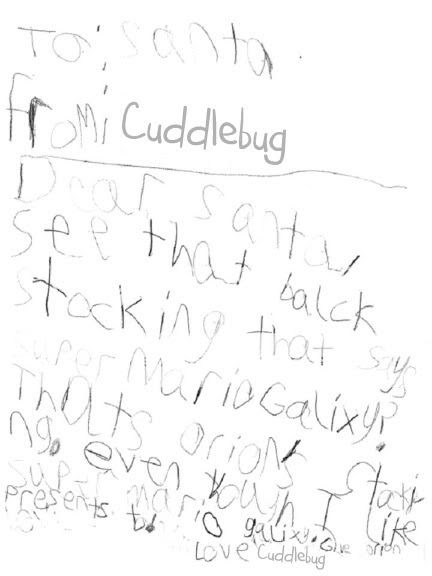 To: Santa
From: Cuddlebug
Dear santa,
See that balck
stocking that says
super Mario Galixy?
Thats orions Stoki
ng. even though I like
super mario galixy. Give orion
presents to!
Love Cuddlebug